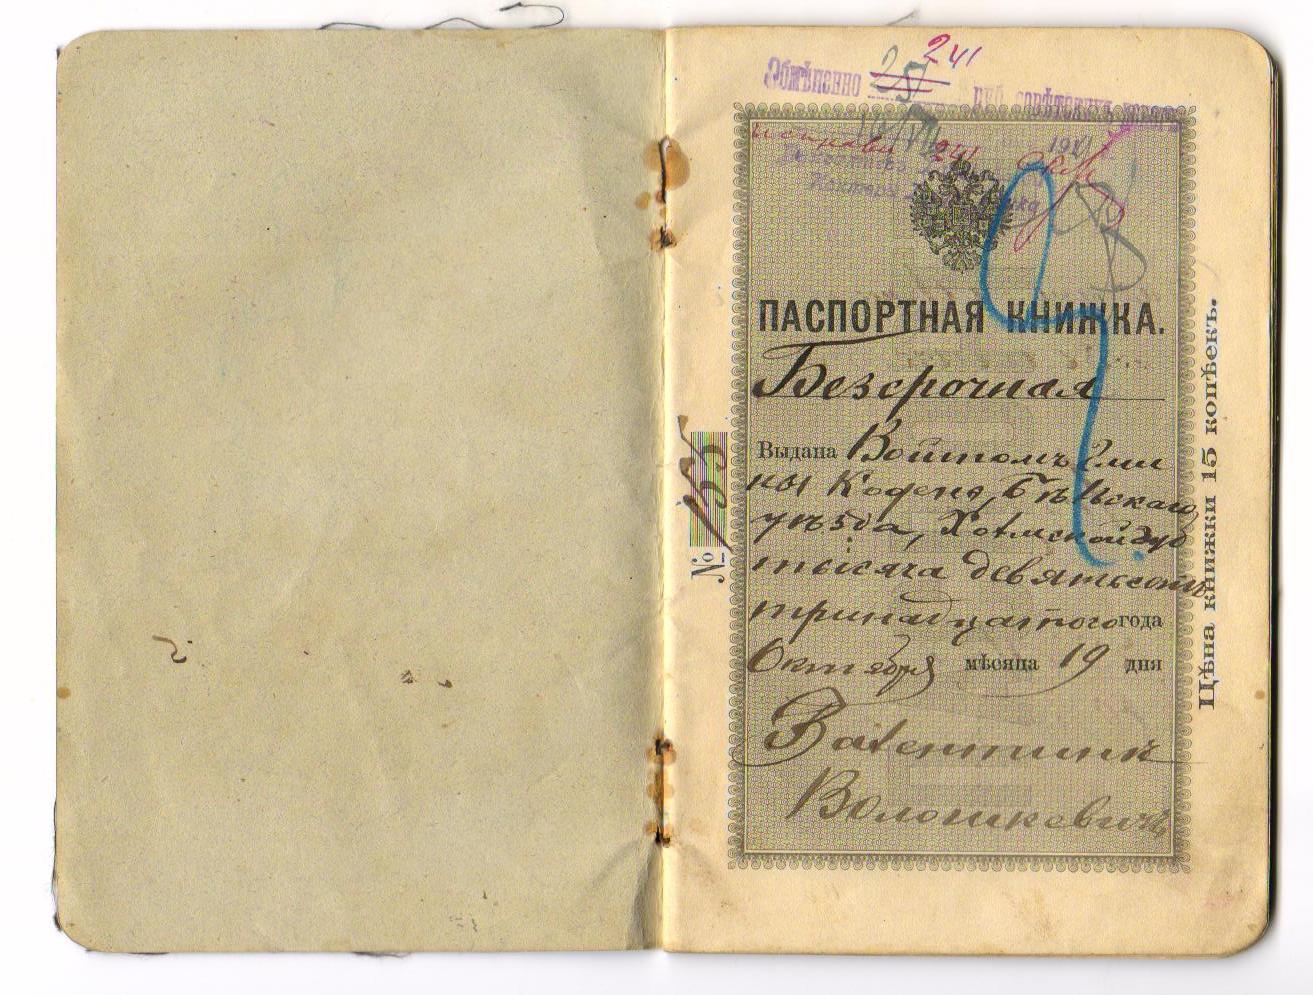 241
Обмѣнено 25 руб. совѣтскихъ
241
192
ПАСПОРТНАЯ КНИЖКА.
Безсрочная
Выдана Войтомъ Гми
ны Кодень, Бѣльскаго
уѣзда, Холмской губ
тысяча девятьсотъ
тринадцатого года
Октября мѣсяца 19 дня
Валентинъ
Волошкевичъ
№ 155
Цѣна книжки 15 копѣекъ.